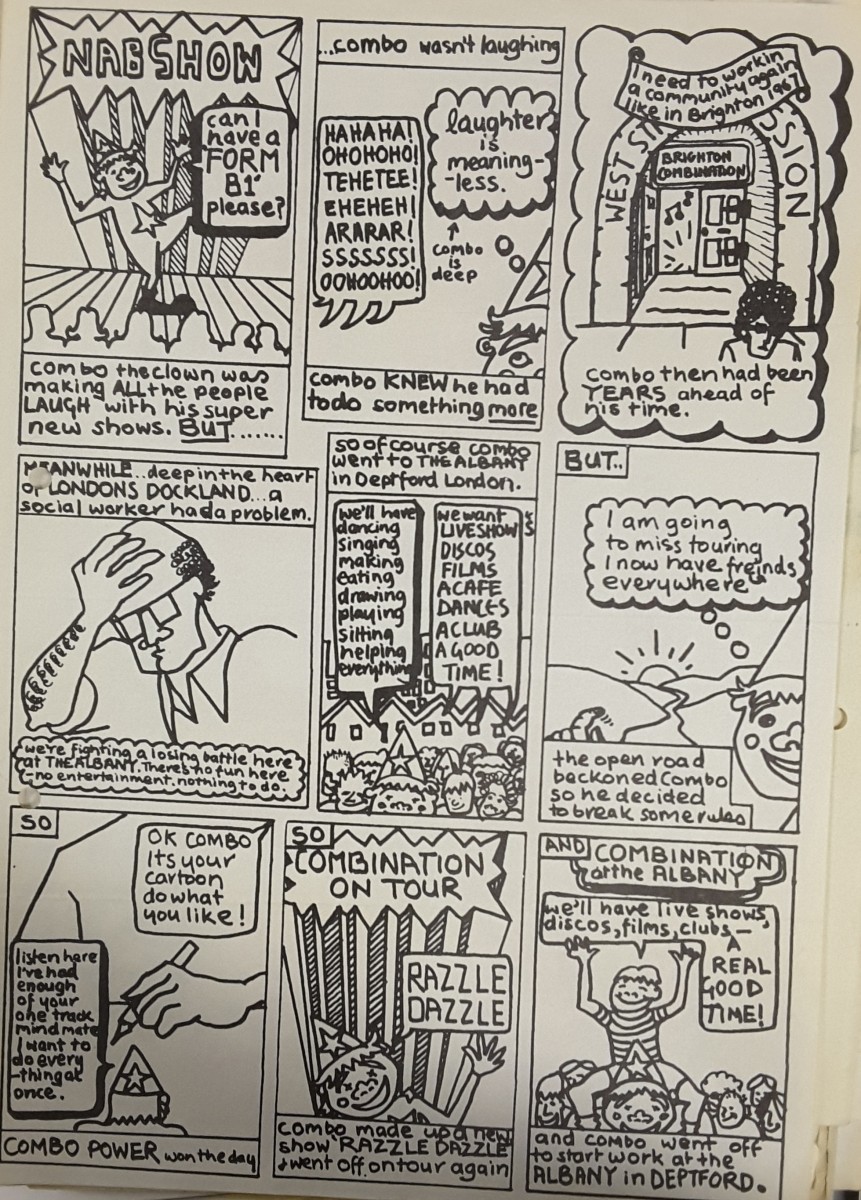 NAB SHOW
can I
have a
'FORM
B1'
please?
combo the clown was
making ALL the people
LAUGH with his super
new shows. BUT.......
...combo wasn't laughing
HAHAHA!
OHOHOHO!
TEHETEE!
EHEHEH!
ARARAR!
SSSSSSS!
OOHOOHOO!
laughter
is
meaning-
-less.
combo
is
deep
combo KNEW he had
to do something more
I need to work in
a community again
like in Brighton 1967
WEST ST
SSION
BRIGHTON
COMBINATION
combo then had been
YEARS ahead of
his time.
MEANWHILE...deep in the heart
of LONDONS DOCKLAND...a
social worker had a problem.
we're fighting a losing battle here
at THE ALBANY. There's no fun here
-no entertainment. nothing to do.
so of course combo
went to THE ALBANY
in Deptford London.
we'll have
dancing
singing
making
eating
drawing
playing
sitting
helping
everything
we want
LIVE SHOWS
DISCOS
FILMS
A CAFE
DANCES
A CLUB
A GOOD
TIME!
BUT..
I am going
to miss touring
I now have freinds
everywhere
the open road
beckoned Combo
so he decided
to break some rules
SO
OK COMBO
its your
cartoon
do what
you like!
listen here
I've had
enough
of your
one track
mind mate
I want to
do every
-thing at
once.
COMBO POWER won the day
SO
COMBINATION
ON TOUR
RAZZLE
DAZZLE
combo made up a new
show 'RAZZLE DAZZLE'
+ went off on tour again
AND
COMBINATION
at the ALBANY
we'll have live shows,
discos, films, clubs -
A
REAL
GOOD
TIME!
and combo went off
to start work at the
ALBANY in DEPTFORD.